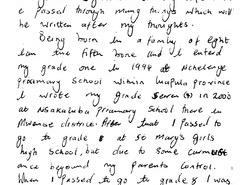 e passed through many things which will
be written after my thoughts.
Being born in a family of eight
I am the fifth borne and I entered
my grade one in 1994 at Nchelenge
Proamary School within Luapula province
I wrote my grade Seven (7) in 2000
at Nsakaluba Preamary School there in
Mwense district. After that I passed to
go to grade 8 at St Mary's girls
high School, but due to some
once beyound my parents control.
When I passed to go to grade 8 I was